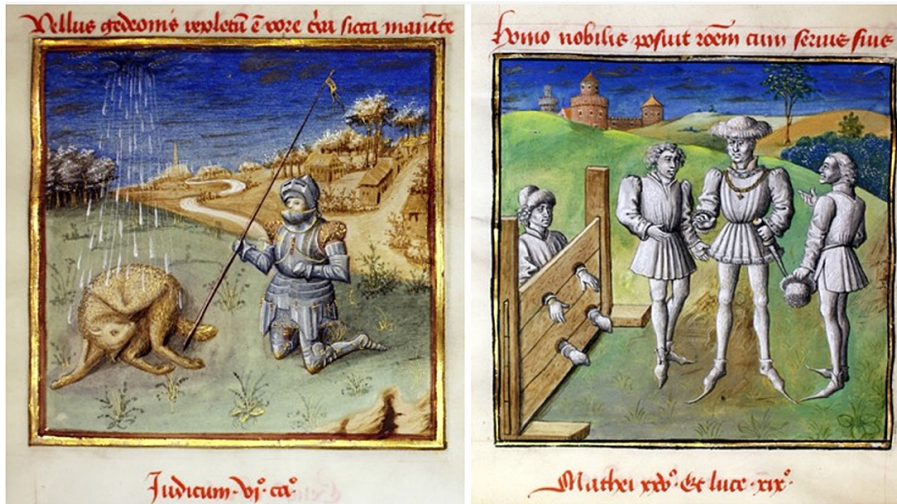 Vellus gedeonis repletū ē rore t'ra sicca manēte
Judicum · vj° · ca°
Homo nobilis posuit rōem cum servis suis
Mathei xxv° · Et luce · xix° ·